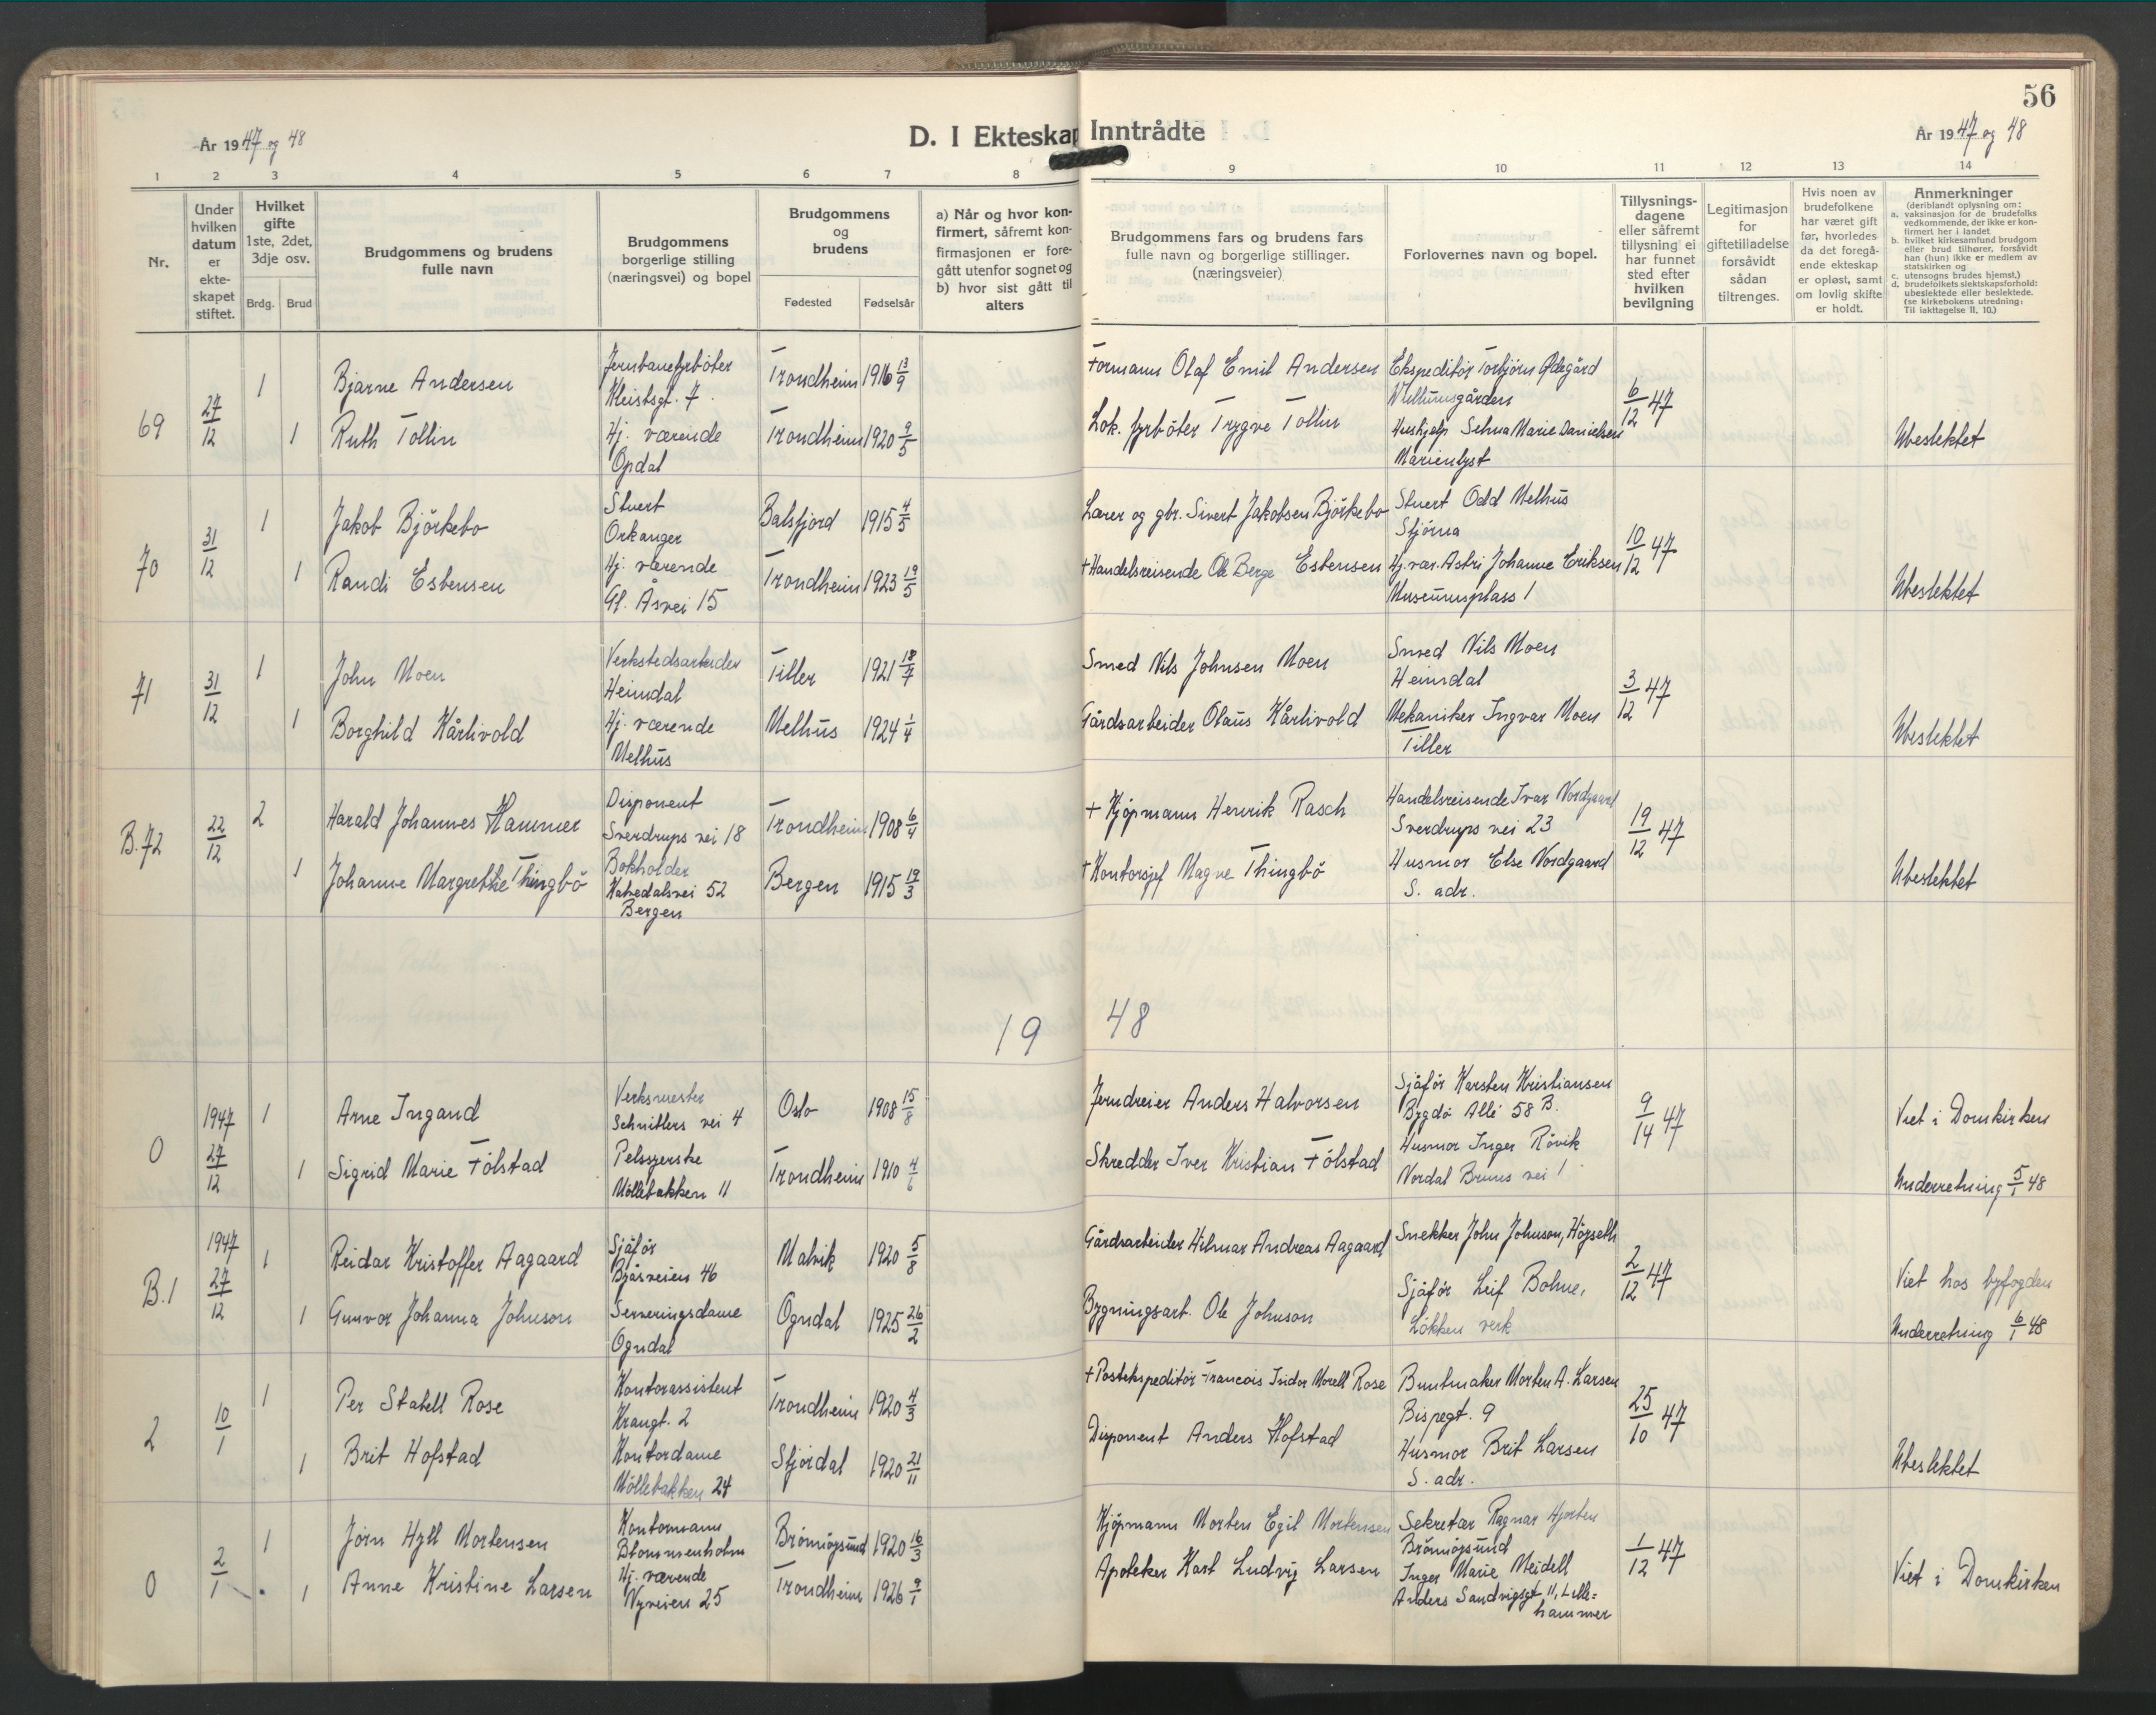 56
År 1947 og 48
D. I Ekteskap Inntrådte
År 1947 og 48
1 2 3 4 5 6 7 8 9 10 11 12 13 14
Nr.
Under hvilken datum er ekte-skapet stiftet.
Hvilket gifte 1ste, 2det, 3dje osv.
Brdg. Brud
Brudgommens og brudens fulle navn
Brudgommens borgerlige stilling (næringsvei) og bopel
Brudgommens og brudens
Fødested Fødselsår
a) Når og hvor kon-firmert, såfremt kon-firmasjonen er fore-gått utenfor sognet og b) hvor sist gått til alters
Brudgommens fars og brudens fars fulle navn og borgerlige stillinger. (næringsveier)
Forlovernes navn og bopel.
Tillysnings-dagene eller såfremt tillysning ei har funnet sted efter hvilken bevilgning
Legitimasjon for giftetilladelse forsåvidt sådan tiltrenges.
Hvis noen av brudefolkene har været gift før, hvorledes da det foregå-ende ekteskap er opløst, samt om lovlig skifte er holdt.
Anmerkninger
(deriblandt oplysning om:
a. vaksinasjon for de brudefolks vedkommende, der ikke er kon-firmert her i landet
b. hvilket kirkesamfund brudgom eller brud tilhører, forsåvidt han (hun) ikke er medlem av statskirken og
c. utensogns brudes hjemst.)
d. brudefolkets slektskapsforhold: ubeslektede eller beslektede. (se kirkebokens utredning: Til iakttagelse II, 10.)
69 27/12
1 Bjarne Andersen Jernbanefyrbøter Kleistsgt. 7 Trondheim 1916 13/9 Formann Olaf Emil Andersen Ekspeditør Torbjørn Ødegård
1 Ruth Tollin Hj. værende Opdal Trondheim 1920 9/5 Lok. fyrbøter Trygve Tollin Hushjelp Selma Marie Danielsen Marienlyst 6/12 47 Ubeslektet
70 31/12
1 Jakob Björkebo Stuert Orkanger Balsfjord 1915 4/5 Lærer og gbr. Sivert Jakobsen Björkebo Stuert Odd Melhus Stjørna
1 Randi Esbensen Hj. værende Gl. Åsvei 15 Trondheim 1923 19/5 + Handelsreisende Ole Berge Esbensen Hj. vær. Astri Johanne Eriksen Museumsplass 1 10/12 47 Ubeslektet
71 31/12
1 John Moen Verkstedsarbeider Heimdal Tiller 1921 18/7 Smed Nils Johnsen Moen Smed Nils Moen Heimdal
1 Borghild Kårlivold Hj. værende Melhus Melhus 1924 1/4 Gårdsarbeider Olaus Kårlivold Mekaniker Ingvar Moen Tiller 3/12 47 Ubeslektet
B.72 22/12
2 Harald Johannes Hammer Disponent Sverdrups vei 18 Trondheim 1908 6/4 + Kjøpmann Henrik Rasch Handelsreisende Ivar Nordgaard Sverdrups vei 23
1 Johanne Margrethe Thingbö Bokholder Kalvedalsvei 52 Bergen Bergen 1915 19/3 + Kontorsjef Magne Thingbö Husmor Else Nordgaard S. adr. 19/12 47 Ubeslektet
19 48
0 1947 27/12
1 Arne Ingand Verksmester Schnitlers vei 4 Oslo 1908 15/8 Jerndreier Anders Halvorsen Sjåför Karsten Kristiansen Bygdö Allé 58 B. Viet i Domkirken
1 Sigrid Marie Fölstad Pelssyerske Möllebakken 11 Trondheim 1910 4/6 Skredder Iver Kristian Fölstad Husmor Inger Rövik Nordal Bruns vei 1 9/14 47 Underretning 5/1 48
B.1 1947 27/12
1 Reidar Kristoffer Aagaard Sjåför 46 Malvik 1920 5/8 Gårdsarbeider Hilmar Andreas Aagaard Snekker John Johnson, Högseth Viet hos byfogden
1 Gunvor Johanna Johnson Serveringsdame Ogndal Ogndal 1925 26/2 Bygningsarb. Ole Johnson Sjåför Leif Bohne, Lökken verk 2/12 47 Underretning 6/1 48
2 10/1
1 Per Stabell Rose Kontorassistent Krangt. 2 Trondheim 1920 4/3 + Postekspeditör Francois Isidor Morell Rose Buntmaker Morten A. Larsen Bispegt. 9
1 Brit Hofstad Kontordame Möllebakken 24 Stjördal 1920 21/11 Disponent Anders Hofstad Husmor Brit Larsen S. adr. 25/10 47 Ubeslektet
0 2/1
1 Jörn Hyll Mortensen Kontormann Blommenholm Brönnöysund 1920 16/3 Kjöpmann Morten Egil Mortensen Sekretær Ragnar Hjorten Brönnöysund
1 Anne Kristine Larsen Hj. værende Nyveien 25 Trondheim 1926 9/1 Apoteker Karl Ludvig Larsen Inger Marie Meidell Anders Sandvigsgt. 11, Lille-hammer 1/12 47 Viet i Domkirken